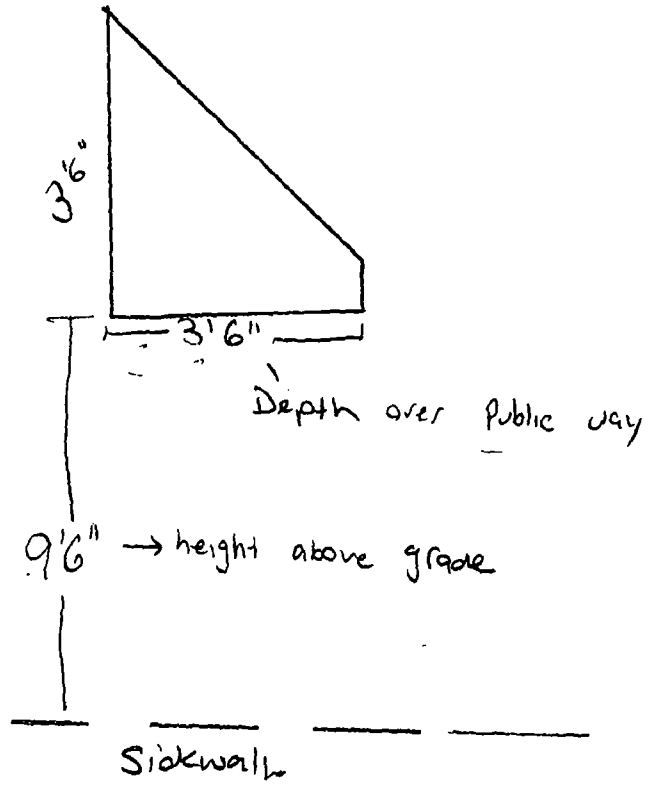 3'6"
3'6"
Depth over Public way
9'6" → height above grade
Sidewalk